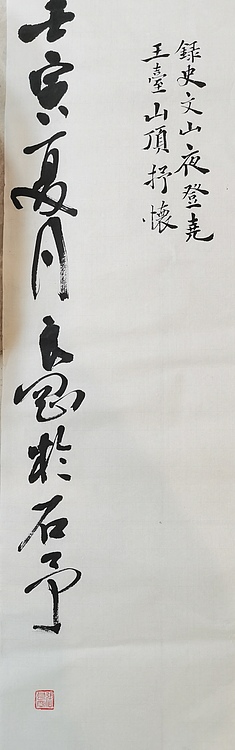 錄史文山夜登堯
王臺山頂抒懷
壬寅夏月良於石予